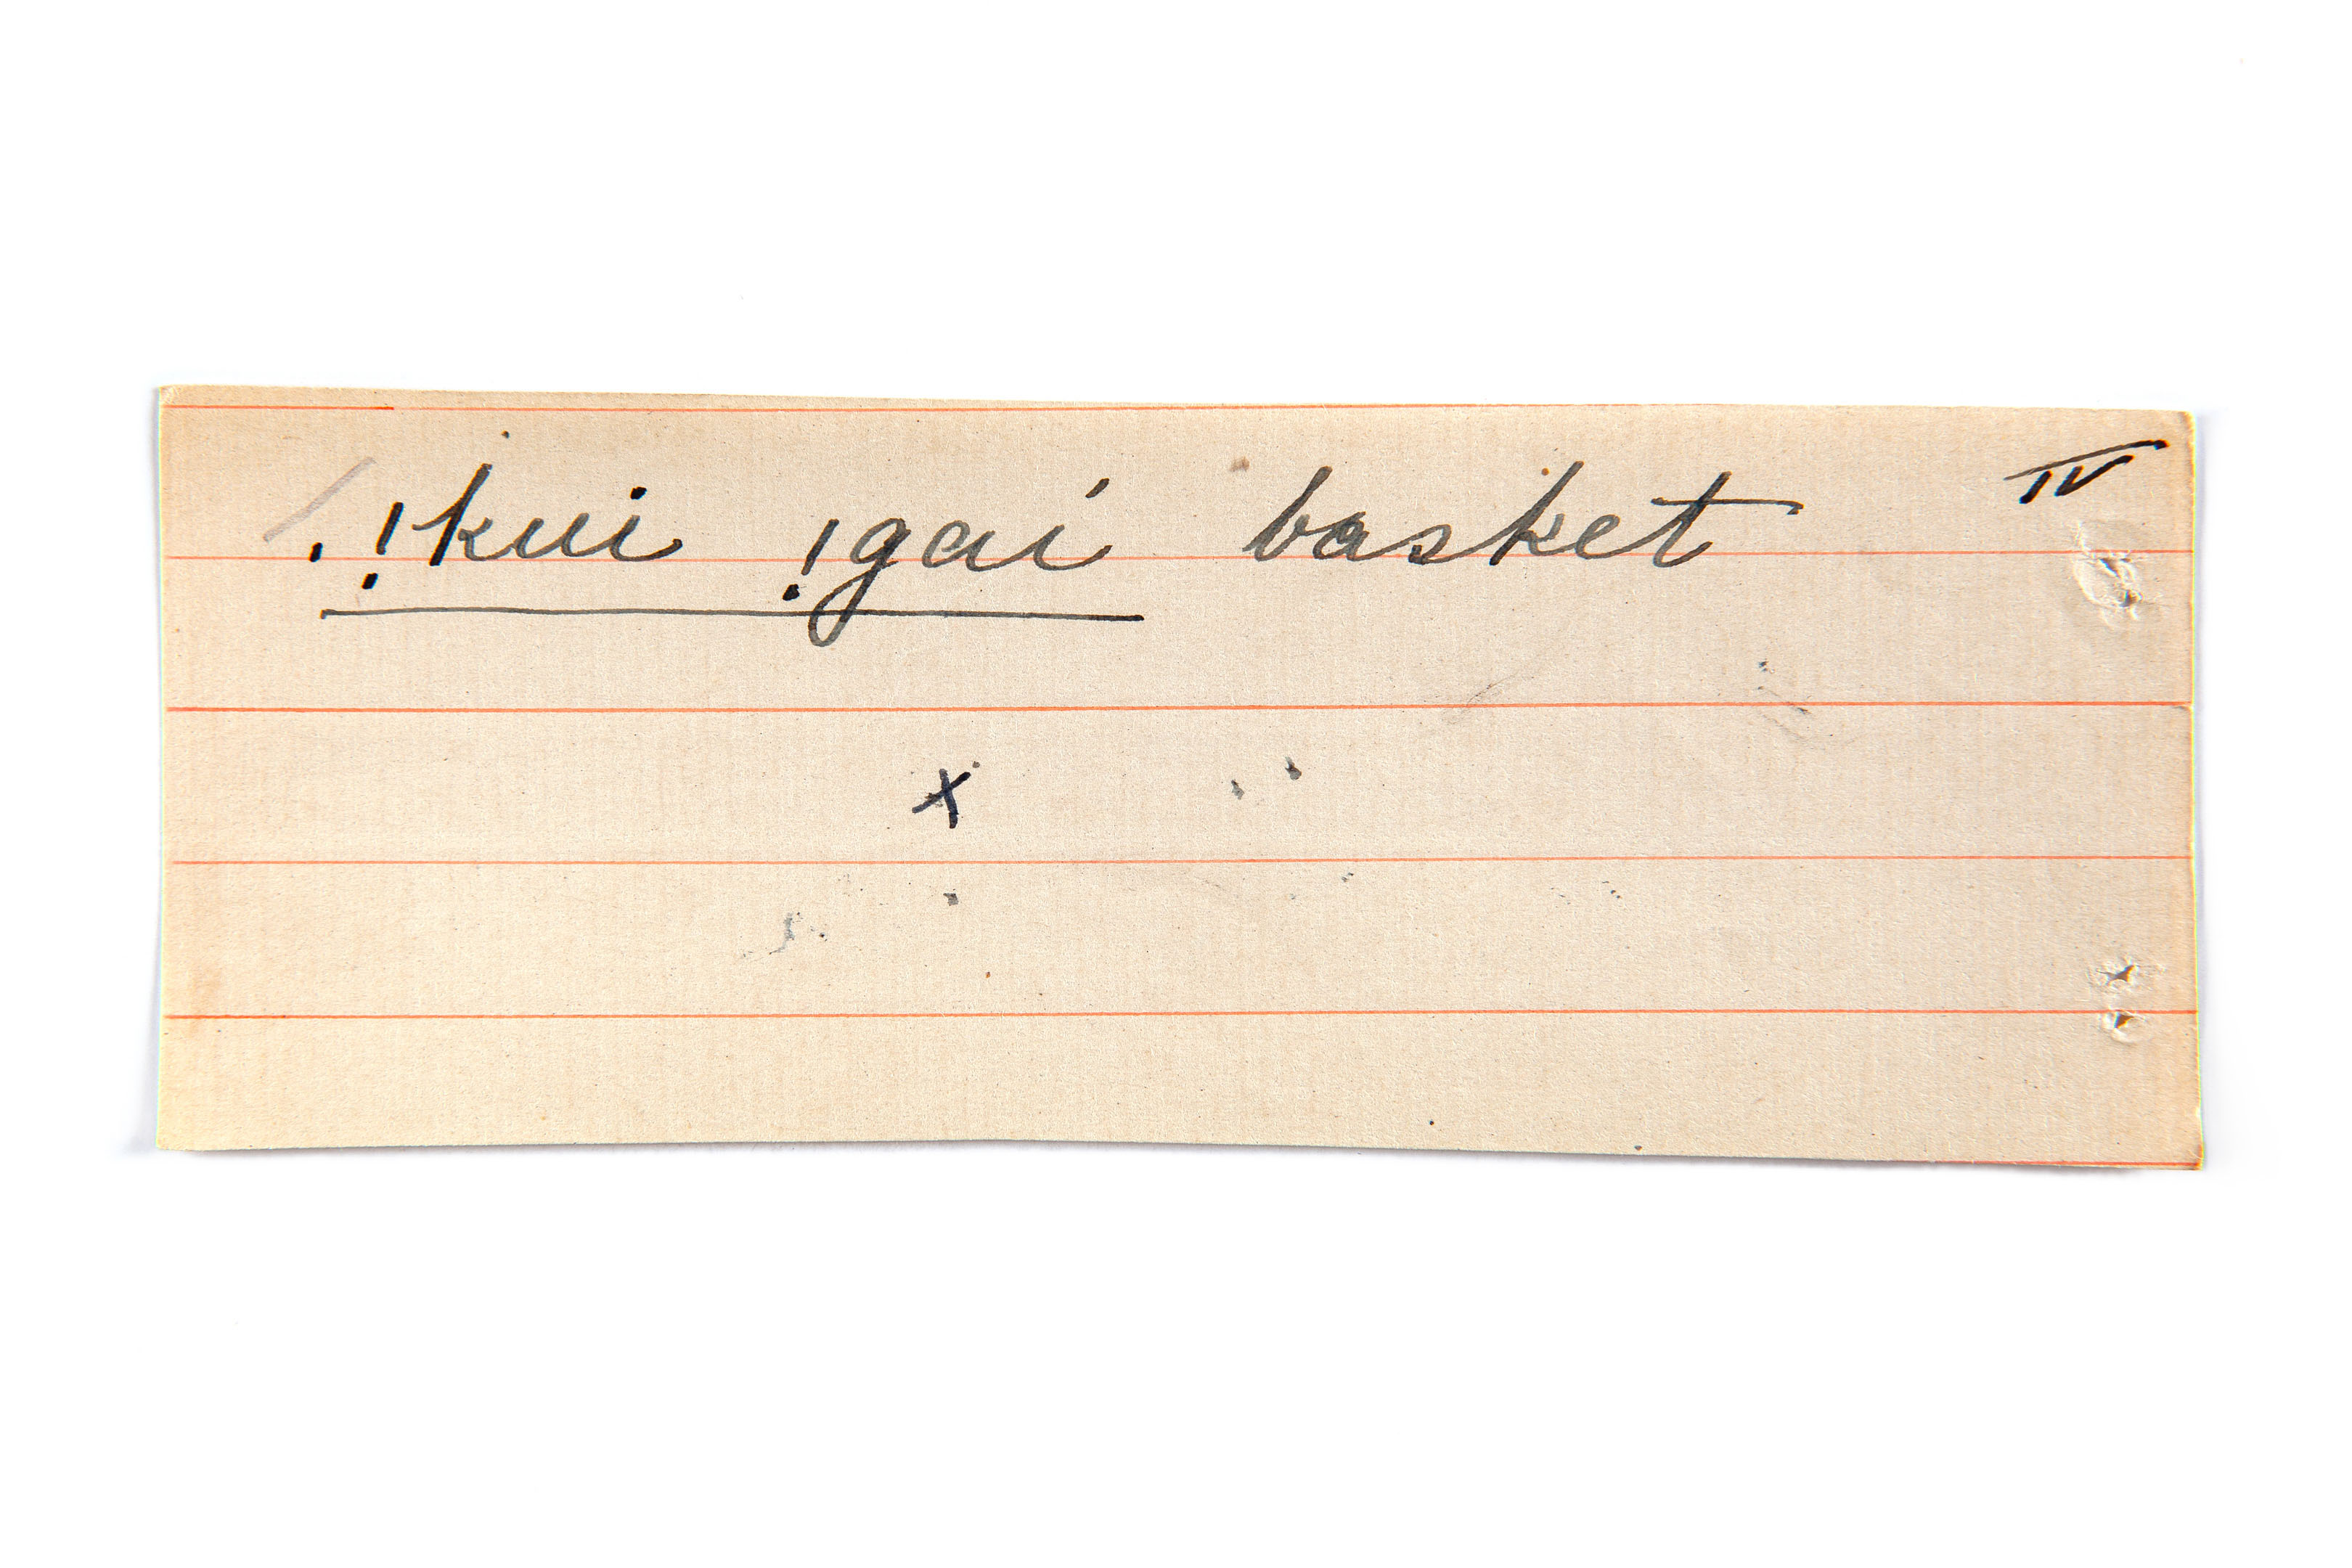 !kui !gai basket IV
x